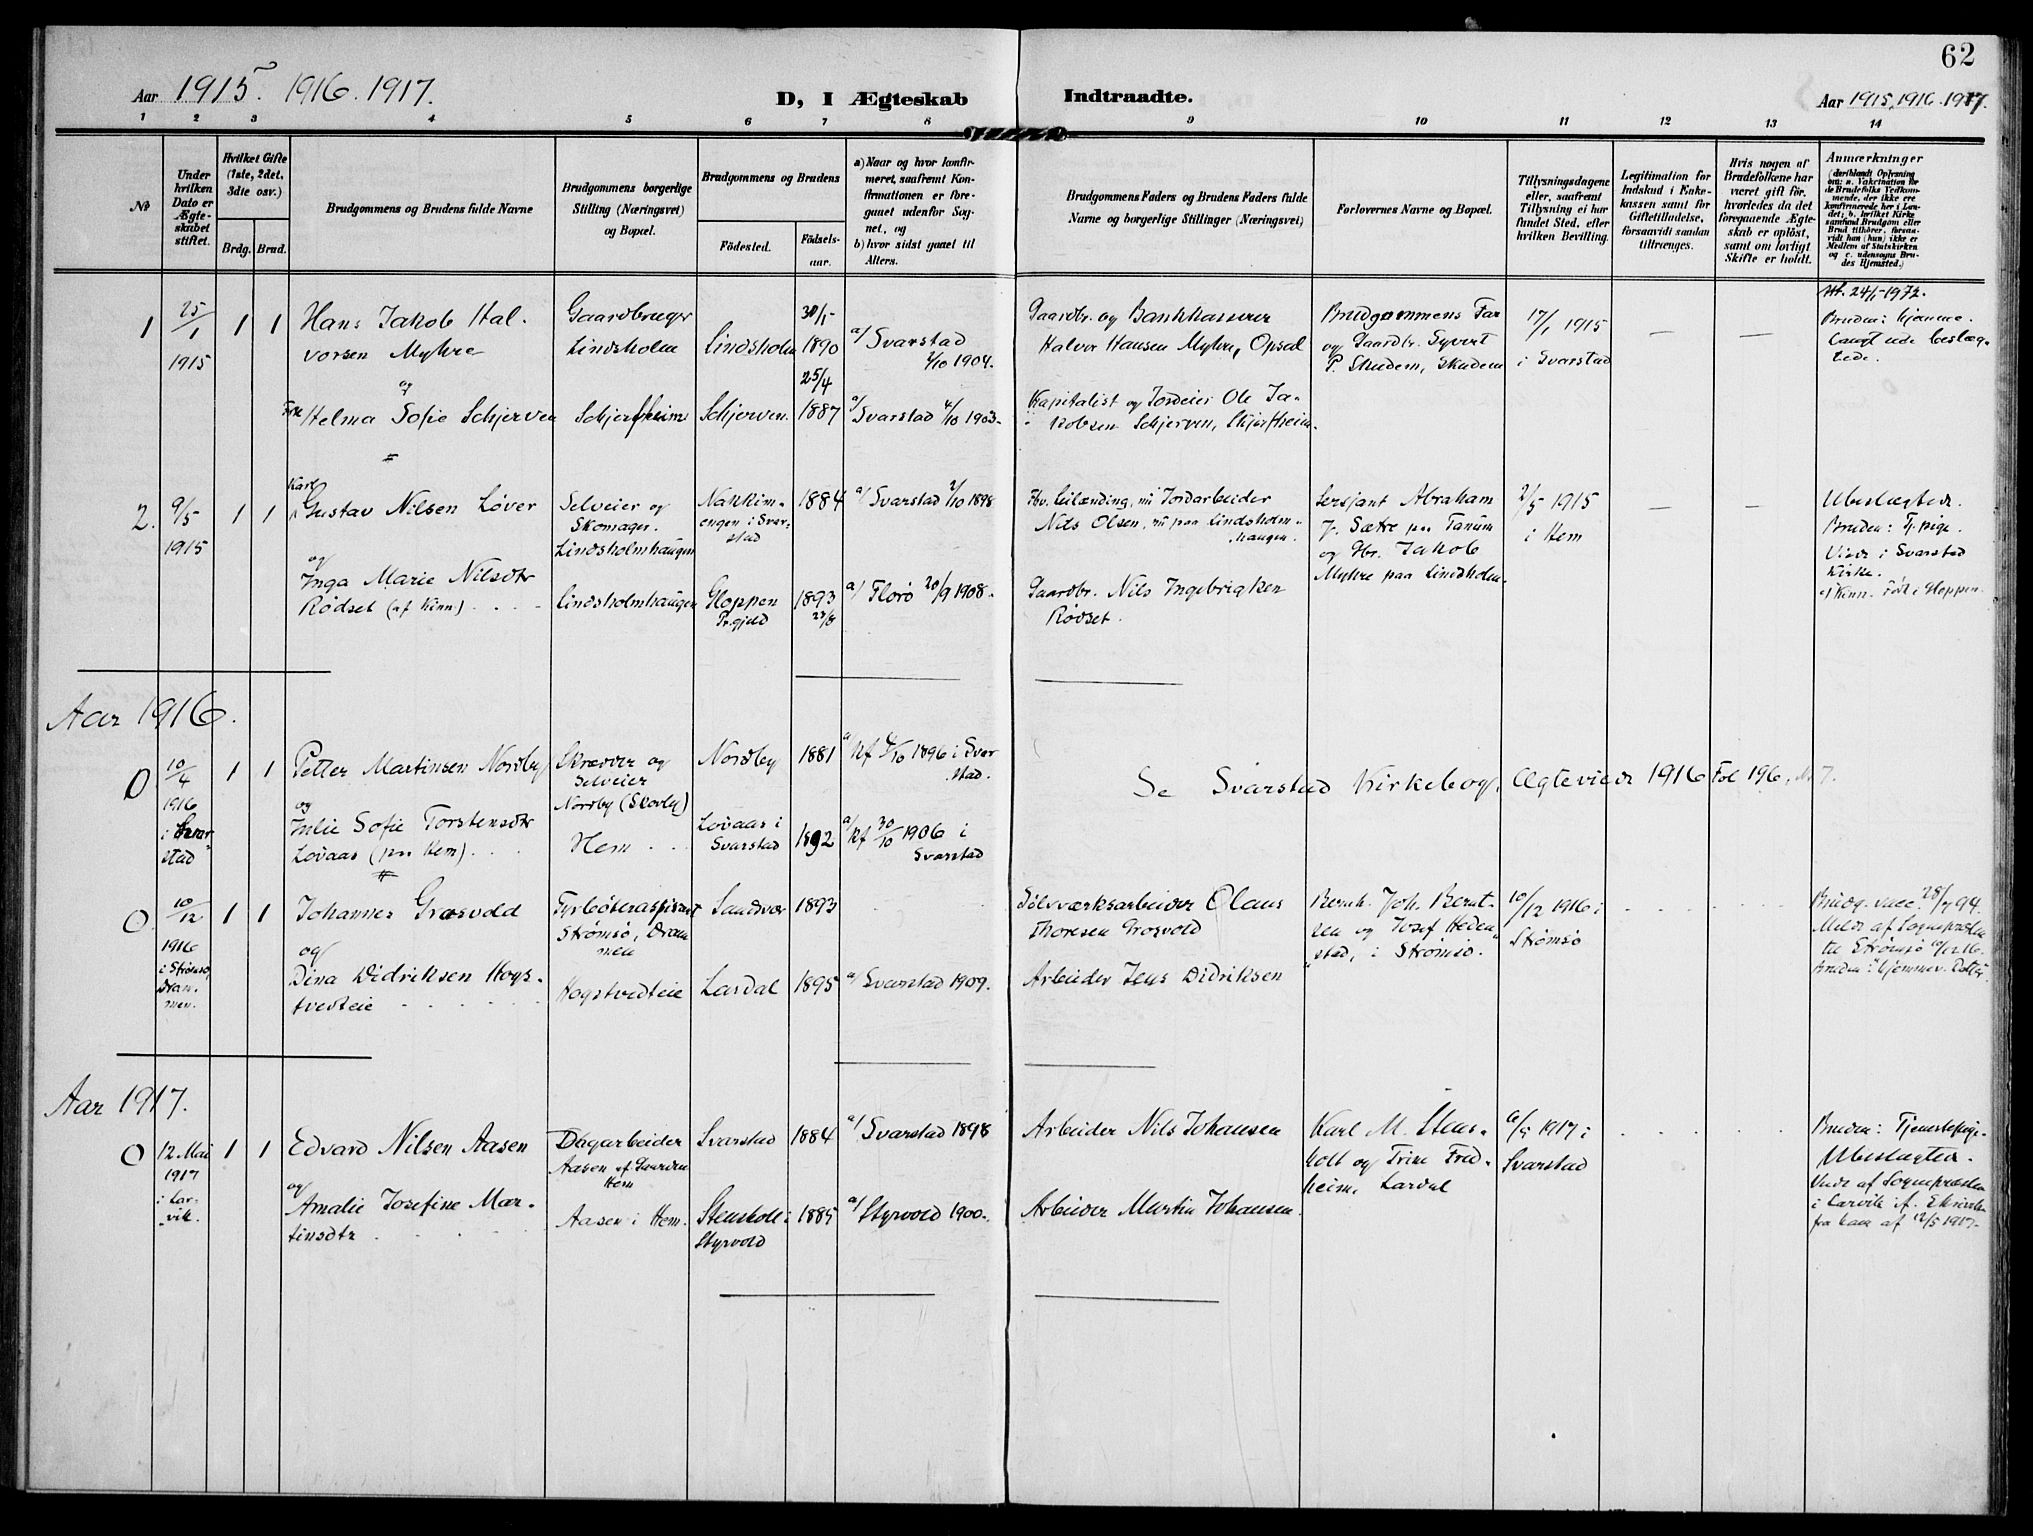 62
Aar 1915. 1916. 1917.
D, I Ægteskab Indtraadte.
Aar 1915, 1916. 1917.
1 2 3 4 5 6 7 8 9 10 11 12 13 14
No
Under hvilken Dato er Ægteskabet stiftet.
Hvilket Gifte (1ste, 2det, 3die osv.)
Brdg. Brud.
Brudgommens og Brudens fulde Navne
Brudgommens borgerlige Stilling (Næringsvei) og Bopæl.
Brudgommens og Brudens
Fødested.
Fødselsaar.
a) Naar og hvor konfirmeret, saafremt Konfirmationen er foregaaet udenfor Sognet, og
b) hvor sidst gaaet til Alters.
Brudgommens Faders og Brudens Faders fulde Navne og borgerlige Stillinger (Næringsvei)
Forlovernes Navne og Bopæl.
Tillysningsdagene eller, saafremt Tillysning ei har fundet Sted, efter hvilken Bevilling.
Legitimation for Indskud i Enkekassen samt for Giftetilladelse, forsaavidt sandan tiltrænges.
Hvis nogen af Brudefolkene har været gift før, hvorledes da det foregaaende Ægteskab er opløst, samt om lovligt Skifte er holdt.
Anmærkninger
(deriblandt Oplysning om: a. Vakcination for de Brudefolks Vedkommende, der ikke ere konfirmerede her i Landet; b. hvilket Kirkesamfund Brudgom eller Brud tilhører, forsaavidt han (hun) ikke er Medlem af Statskirken og c. udensogns Brudes Hjemsted.)
1 25/1 1915 1 1
Hans Jakob Halvorsen Myhre
Gaardbruger Lindsholm
Lindsholm
30/5 1890
a/ Svarstad 2/10 1904.
Gaardbr. og Bankkasserer Halvor Hansen Myhre, Opsal
Brudgommens Far og Gaardbr. Syvert P. Skudem, Skudem
17/1 1915 i Svarstad
— —
Att. 24/5-1972.
Bruden: hjemme.
Langt ude beslægtede.
og
Frk. Helma Sofie Schjerven
Schjerfheim
Schjerven.
25/4 1887
a/ Svarstad 4/10 1903.
Kapitalist og Jordeier Ole Jakobsen Schjerven, Skjerfheim.
2. 9/5 1915 1 1
Karl Gustav Nilsen Løver
Selveier og Skomager. Lindsholmhaugen
Nakkimengen i Svarstad
1884
a/ Svarstad 2/10 1898
Fhv. Leilænding, nu Jordarbeider Nils Olsen, nu paa Lindsholmhaugen.
Sersjant Abraham J. Sætre paa Tanum og Gbr. Jakob Myhre paa Lindsholm.
2/5 1915 i Hem
— —
Ubeslægtede.
Bruden: Tj. pige.
Viede i Svarstad Kirke.
a/ Kinn. Født i Gloppen.
og
Inga Marie Nilsdtr Rødset (af Kinn)
Lindsholmhaugen
Gloppen Pr.gjeld
1893 23/8
a/ Florø 20/9 1908.
Gaardbr. Nils Ingebrigtsen Rødset.
Aar 1916.
0 10/4 1916 i Svarstad 1 1
Petter Martinsen Nordby
Skrædder og Selveier Nordby (Skovby)
Nordby
1881
a/ kf 4/10 1896 i Svarstad.
Se Svarstad Kirkebog, Ægteviede 1916 Fol 196, No 7.
og
Julie Sofie Torstensdtr Lovaas (paa Hem)
Hem
Lovaas i Svarstad
1892
a/ kf 30/10 1906 i Svarstad
0 10/12 1916 i Strømsø, Drammen. 1 1
Johannes Grosvold
Fyrbøteraspirant Strømsø, Drammen
Sandsvær
1893
Sølvværksarbeider Olaus Thoresen Grosvold
Bernh. Joh. Berntsen og Josef Hedenstad, i Strømsø.
10/12 1916 i Strømsø
Brudg. vacc. 28/7 94.
Meldt af Sognepræsten til Strømsø 10/12 16.
Bruden: hjemmev. Datter
og
Dina Didriksen Hogstvedteie
Hogstvedteie
Lardal
1895
a/ Svarstad 1909.
Arbeider Jens Didriksen
Aar 1917.
0 12. Mai 1917 i Larvik. 1 1
Edvard Nilsen Aasen
Dagarbeider Aasen af Gaarden Hem
Svarstad
1884
a/ Svarstad 1898
Arbeider Nils Johansen
Karl M. Stensholt og Trine Fredheim, Lardal
6/5 1917 i Svarstad
Bruden: Tjenestepige.
Ubeslægtede.
Viede af Sognepræsten i Larvik
fra ham af 12/5 1917.
og
Amalie Josefine Martinsdtr
Aasen i Hem.
Stensholt i Styrvold
1885
a/ Styrvold 1900.
Arbeider Martin Johansen.